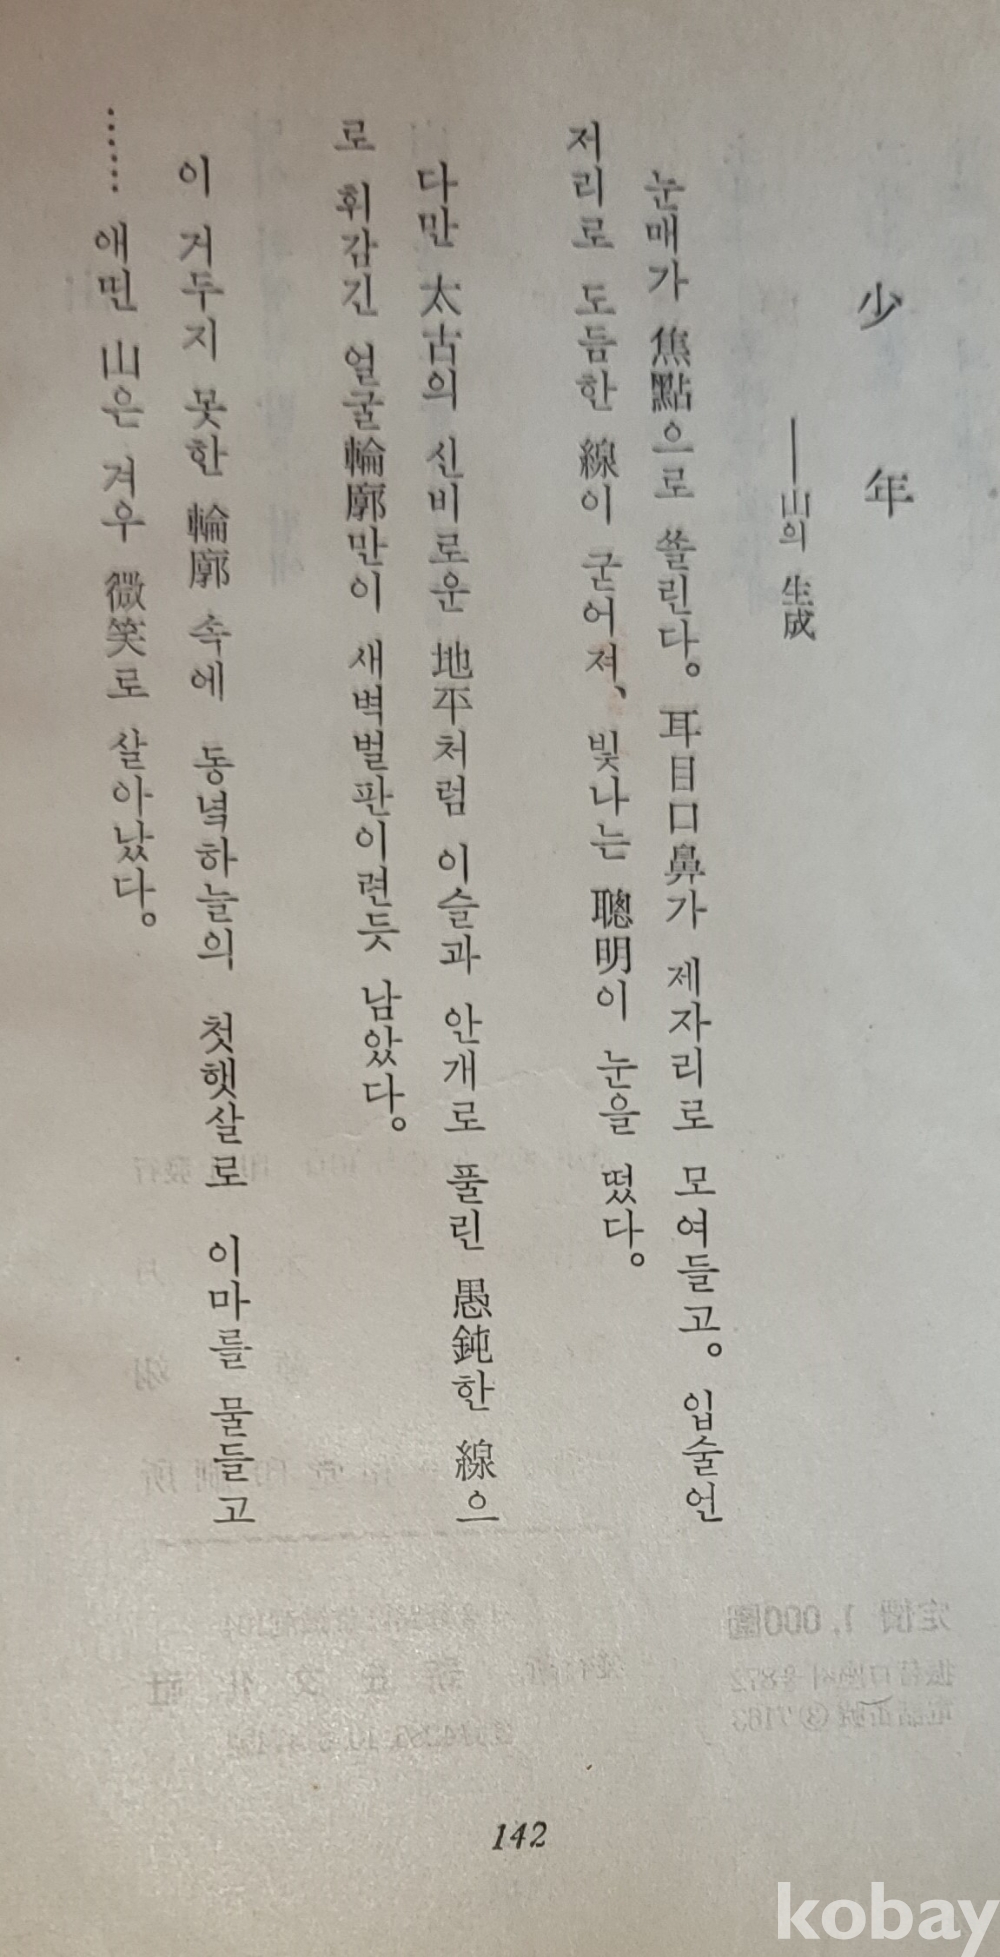 少年
——山의 生成
눈매가 焦點으로 쏠린다。 耳目口鼻가 제자리로 모여들고。 입술언
저리로 도듬한 線이 굳어져、 빛나는 聰明이 눈을 떴다。
다만 太古의 신비로운 地平처럼 이슬과 안개로 풀린 愚鈍한 線으
로 휘감긴 얼굴輪廓만이 새벽벌판이련듯 남았다。
이 거두지 못한 輪廓 속에 동녘하늘의 첫햇살로 이마를 물들고
…… 애띤 山은 겨우 微笑로 살아났다。
142
kobay